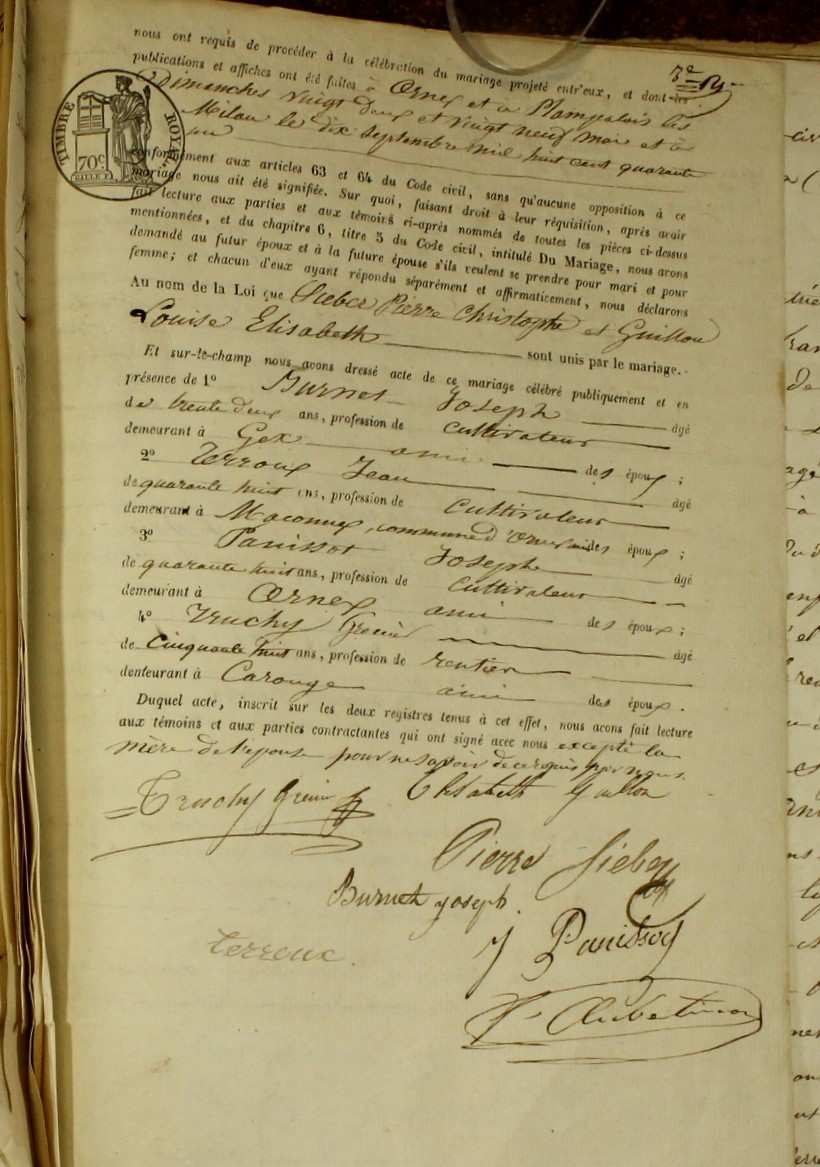 3e
nous ont requis de procéder à la célébration du mariage projeté entr'eux, et dont les
publications et affiches ont été faites à Ornex et à Plampalais les
Dimanches vingt deux et vingt neuf mai et à
Milan le dix septembre mil huit cent quarante
un
conformément aux articles 63 et 64 du Code civil, sans qu'aucune opposition à ce
mariage nous ait été signifiée. Sur quoi, faisant droit à leur réquisition, après avoir
fait lecture aux parties et aux témoins ci-après nommés de toutes les pièces ci-dessus
mentionnées, et du chapitre 6, titre 5 du Code civil, intitulé Du Mariage, nous avons
demandé au futur époux et à la future épouse s'ils veulent se prendre pour mari et pour
femme; et chacun d'eux ayant répondu séparément et affirmativement, nous déclarons
Au nom de la Loi que Sieber Pierre Christophe et Guillon
Louise Elisabeth sont unis par le mariage.
Et sur-le-champ nous avons dressé acte de ce mariage célébré publiquement et en
présence de 1° Burnet Joseph âgé
de trente deux ans, profession de cultivateur
demeurant à Gex ami des époux ;
2° Terroux Jean âgé
de quarante huit ans, profession de cultivateur
demeurant à Maconnex, commune d' des époux ;
3° Panissot Joseph âgé
de quarante huit ans, profession de cultivateur
demeurant à Ornex ami des époux ;
4° Truchy âgé
de Cinquante huit ans, profession de rentier
demeurant à Carouge ami des époux.
Duquel acte, inscrit sur les deux registres tenus à cet effet, nous avons fait lecture
aux témoins et aux parties contractantes qui ont signé avec nous excepté la
mère de l'épouse pour ne savoir de ce requis par nous.
Truchy Elisabeth Guillon
Pierre Sieber
Burnet Joseph.
Terroux. J Panissod
TIMBRE ROYAL
70c